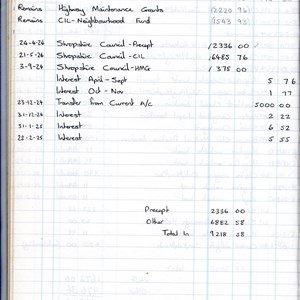 Remains Highway Maintenance Grants (2220 96)
Remains CIL-Neighbourhood Fund (1543 95)
24-4-24 Shropshire Council-Precept 12336 00
21-5-24 Shropshire Council-CIL 16485 76
3-9-24 Shropshire Council-HMG 1375 00
Interest April-Sept 5 76
Interest Oct-Nov 1 77
23-12-24 Transfer from Current A/c 5000 00
31-12-24 Interest 2 22
31-1-25 Interest 6 52
28-2-25 Interest 5 55
Precept 2336 00
Other 6882 58
Total In 9218 58